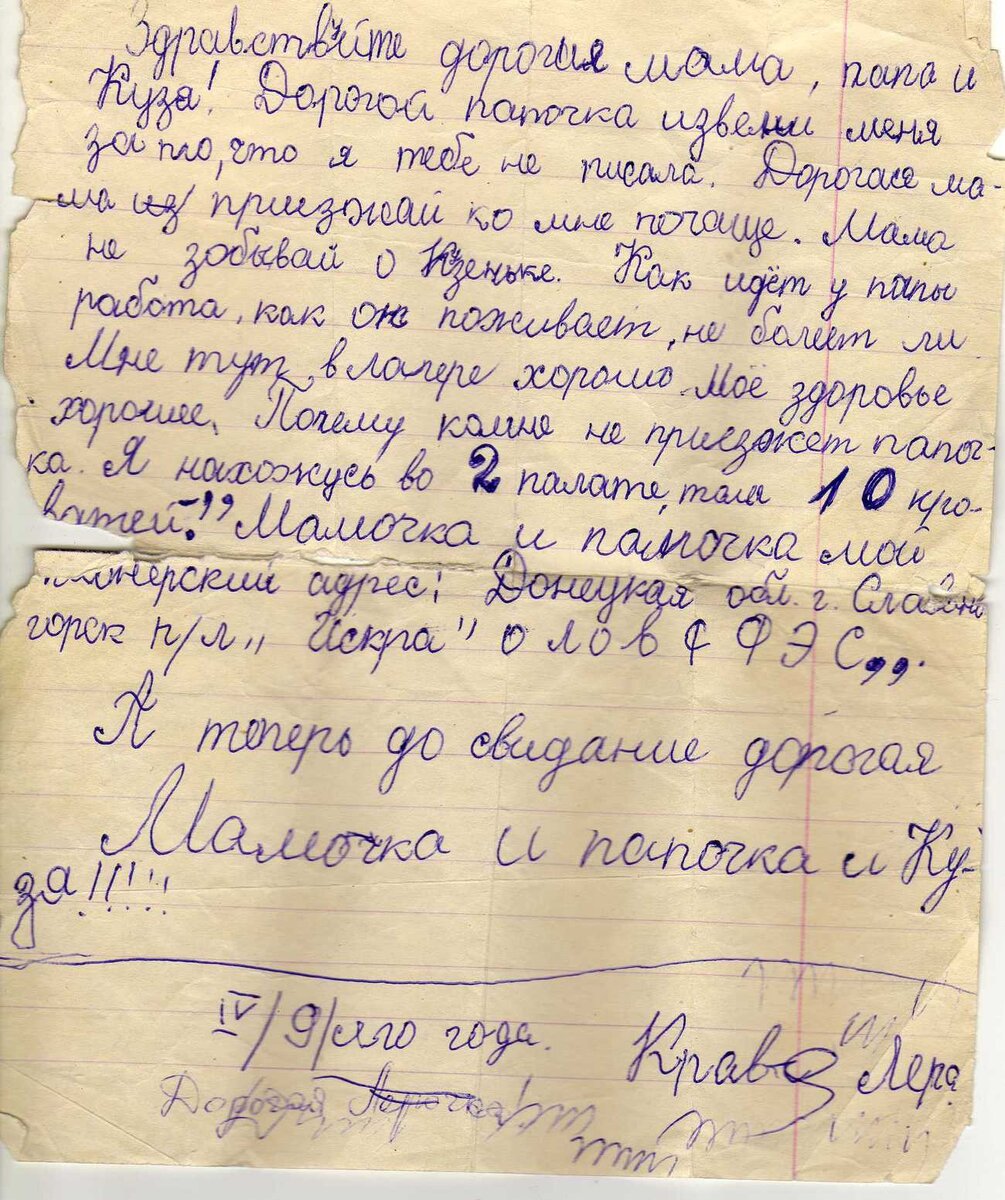 Здравствуйте дорогия мама, папа и
Куза! Дорогой папочка извени меня
за то, что я тебе не писала. Дорогая ма-
ма из приезжай ко мне почаще. Мама
не зобывай о Кзеньке. Как идёт у папы
работа, как он поживает, не болеет ли.
Мне тут в лагере хорошо. Моё здоровье
хорошее. Почему комне не приезжет папоч-
ка. Я нахожусь во 2 палате, там 10 кро-
ватей. ,, Мамочка и папочка мой
пионерский адрес: Донецкая обл. г. Славяно
горск п/л ,, Искра"
А теперь до свидание дорогая
Мамочка и папочка и Ку-
за!!!!!
IV/9/яго года. Лера
Дорогая Лерочка!